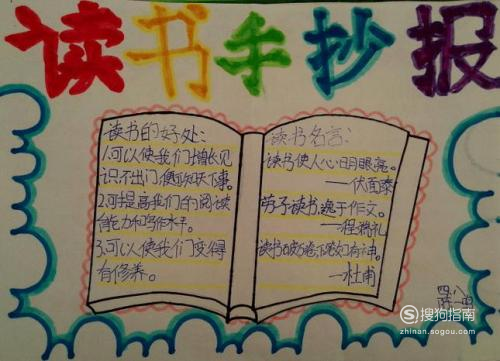 读书手抄报
读书的好处：
1.可以使我们增长见
识不出门，便可知天下事。
2.可提高我们的阅读
能力和写作水平。
3.可以使我们变得
有修养。
读书名言：
读书使人心明眼亮。
——伏
劳于读书，逸于作文。
——程
读书破万卷，下笔如有神。
——杜甫
四、八
搜狗指南
zhinan.sogou.com